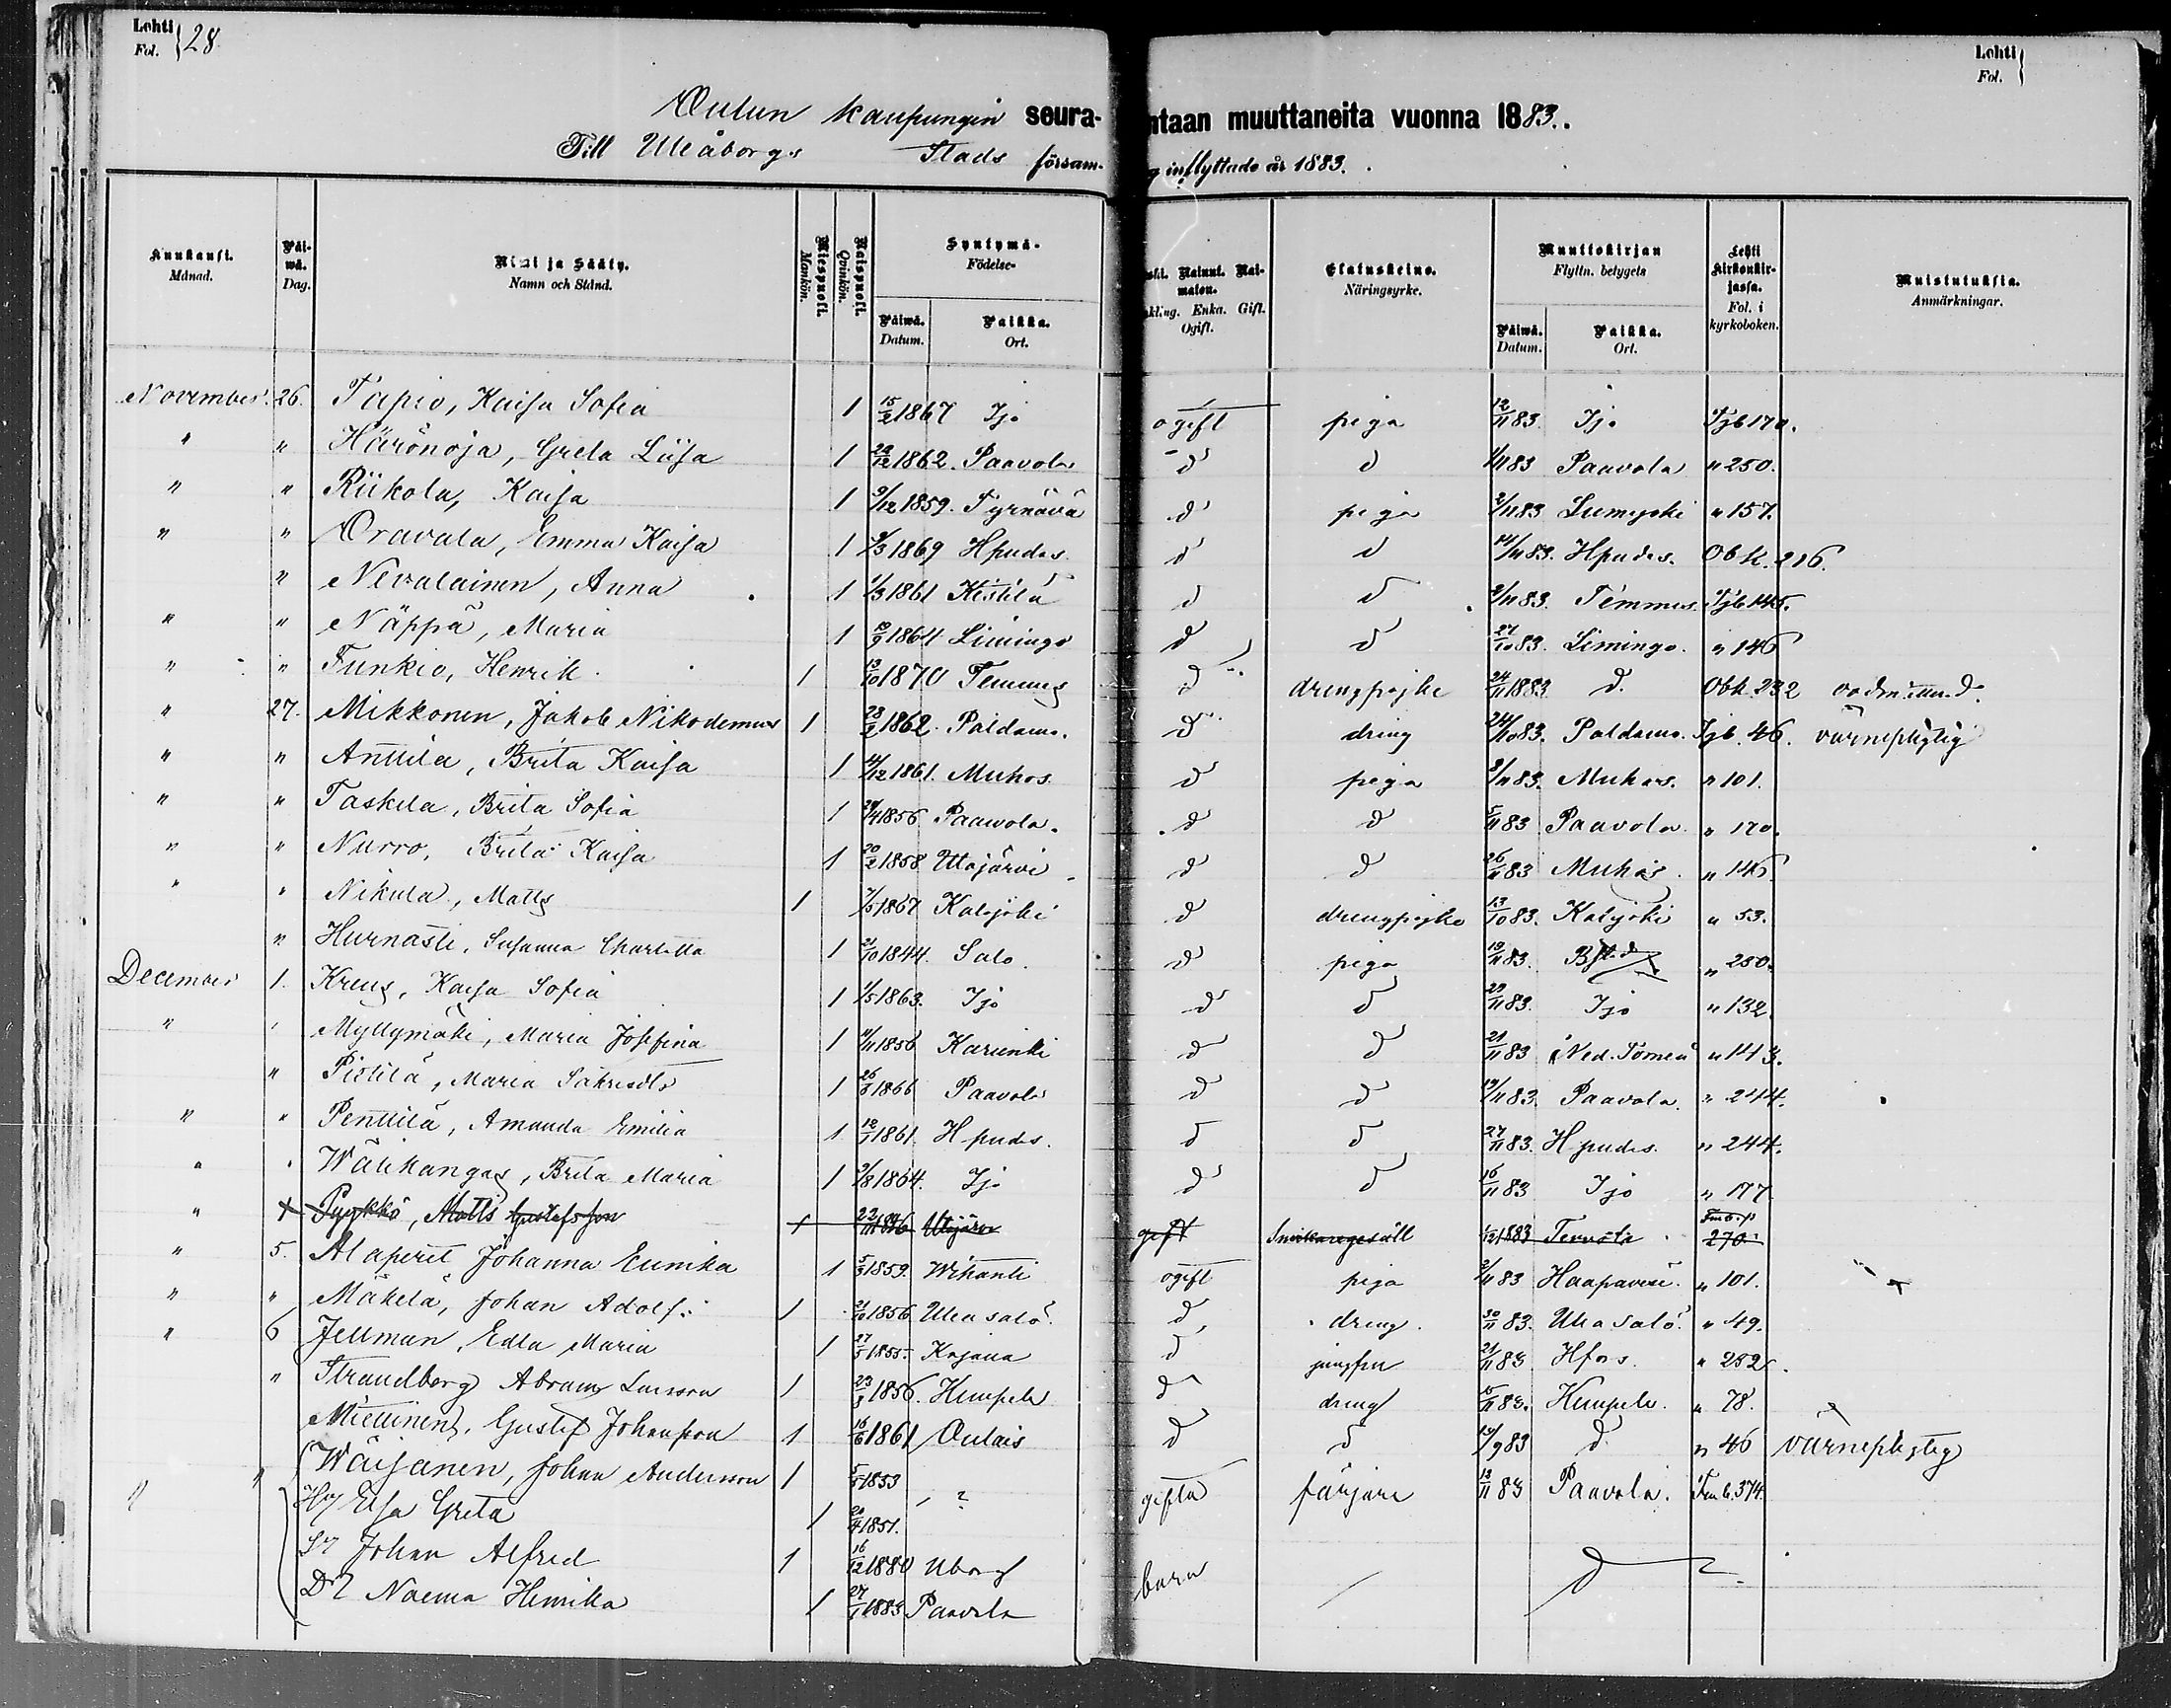 Lohti Fol. } 28
Lohti Fol. }
Oulun kaupungin seura- ntaan muuttaneita vuonna 1883.
Till Uleåborgs Stads försam- g inflyttade år 1883.
Kuukausi. Månad. Päi-wä. Dag. Nimi ja Sääty. Namn och Stånd. Miespuoli. Mankön. Naispuoli. Qvinkön. Syntymä- Födelse- Päiwä. Datum. Paikka. Ort. Nainut. Nai-maton. Enka. Gift. Ogift. Elatuskeino. Näringsyrke. Muuttokirjan Flyttn. betygets Päiwä. Datum. Paikka. Ort. Lehti kirkonkir-jassa. Fol. i kyrkoboken. Muistutuksia. Anmärkningar.
November. 26. Tapio, Kaisa Sofia 1 15/2 1867 Ijo ogift piga 12/11 83. Ijo Tjb 170.
" " Härönoja, Greta Liisa 1 12 1862. Paavola d d 1/11 83 Paavola " 250.
" " Riikola, Kaisa 1 9/12 1859. Tyrnävä d piga 2/11 83 Lumijoki " 157.
" " Oravala, Emma Kaisa 1 9/3 1869 Hpudas d d 14/11 83. Hpudas. Obk. 216.
" Nevalainen, Anna 1 1/3 1861 Kestilä d d 2/11 83. Temmes. Tjb 145.
" " Näppä, Maria 1 9 1864 Limingo d d 27/10 83. Limingo. " 146
" " Funkio, Henrik 1 13/10 1870 Temmes d drengpojke 24/11 1883. d. Obk. 232
" 27. Mikkonen, Jakob Nikodemus 1 28/2 1862. Paldamo. d dreng 24/10 83. Paldamo. Tjb. 46. värnepligtig
" " Anttila, Brita Kaisa 1 4/12 1861. Muhos d piga 8/11 83. Muhos. " 101.
" " Taskila, Brita Sofia 1 1856 Paavola. d d 5/11 83 Paavola " 170.
" " Nurro, Brita Kaisa 1 20/2 1858 Utajärvi d d 26/11 83 Muhos. " 146.
" " Nikula, Matts 1 1867 Kalajoki d drengpojke 13/10 83. Kalajoki " 53.
" Hurnasti, Susanna Charlotta 1 21/10 1844. Salo. d piga 83. " 250.
December 1. Kreus, Kaisa Sofia 1 1/5 1863. Ijo d d 29/11 83. Ijo " 132.
" " Myllymäki, Maria Josefina 1 11/11 1856 Karunki d d 21/11 83 Ned. Torneå " 143.
" Pietilä, Maria 1 26 1866 Paavola d d 19/11 83. Paavola. " 244.
" " Penttilä, Amanda Emilia 1 12 1861. Hpudas. d d 27/11 83. Hpudas. " 244.
" " Wälikangas, Brita Maria 1 3/8 1864. Ijo d d 16/11 83 Ijo " 177
" Pyykkö, Matts Gustafsson 1 1846 Utajärvi gift Snickaregesäll 1/12 1883 Tervola 270.
" 5. Alaperet Johanna Eunika 1 5/3 1859. Wihanti ogift piga 2/11 83 Haapavesi. " 101.
" " Mäkelä, Johan Adolf 1 21/10 1856 Uleåsalo. d dreng. 30/11 83. Uleåsalo. " 49.
" 6 Jellman, Edla Maria 1 27/5 1855. Kajana d jungfru 21/11 83 Hfors. " 252.
" Strandberg Abram Larsson 1 23/3 1856. Kempele d dreng 15/11 83. Kempele. " 78.
Miettinen, Gustaf Johansson 1 16/6 1861 Oulais d d 19/9 83 d " 46 värnepligtig
" Wäisänen, Johan Andersson 1 5/5 1833 ? gifta färjare 13/11 83 Paavola. Fmb. 374.
" H Elsa Greta 1 20/4 1851.
Sn Johan Alfred 1 16/12 1880 Uborg barn d
Dr Naema Henrika 1 27/1 1883 Paavola